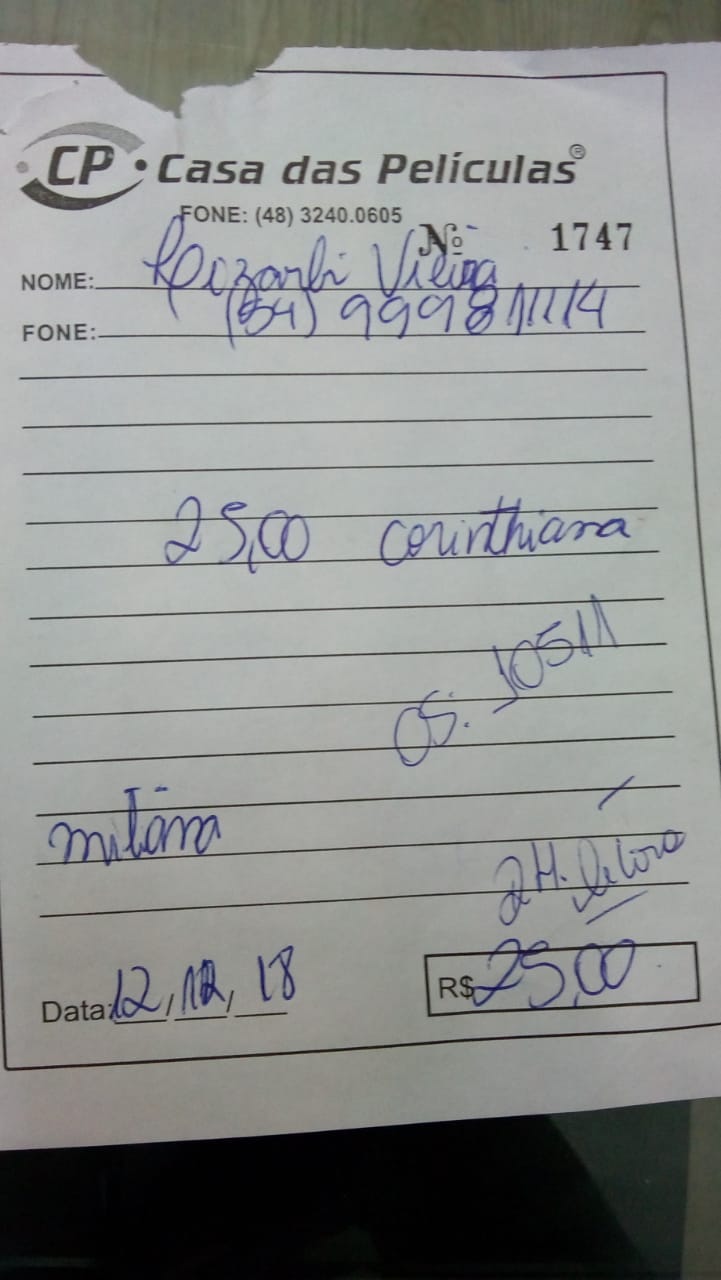 CP • Casa das Películas®
FONE: (48) 3240.0605
Nº 1747
NOME: Vieira
FONE: (54) 999811114
25,00 Corinthiana
OS: 10511
Data: 12, 12, 18
R$ 25,00